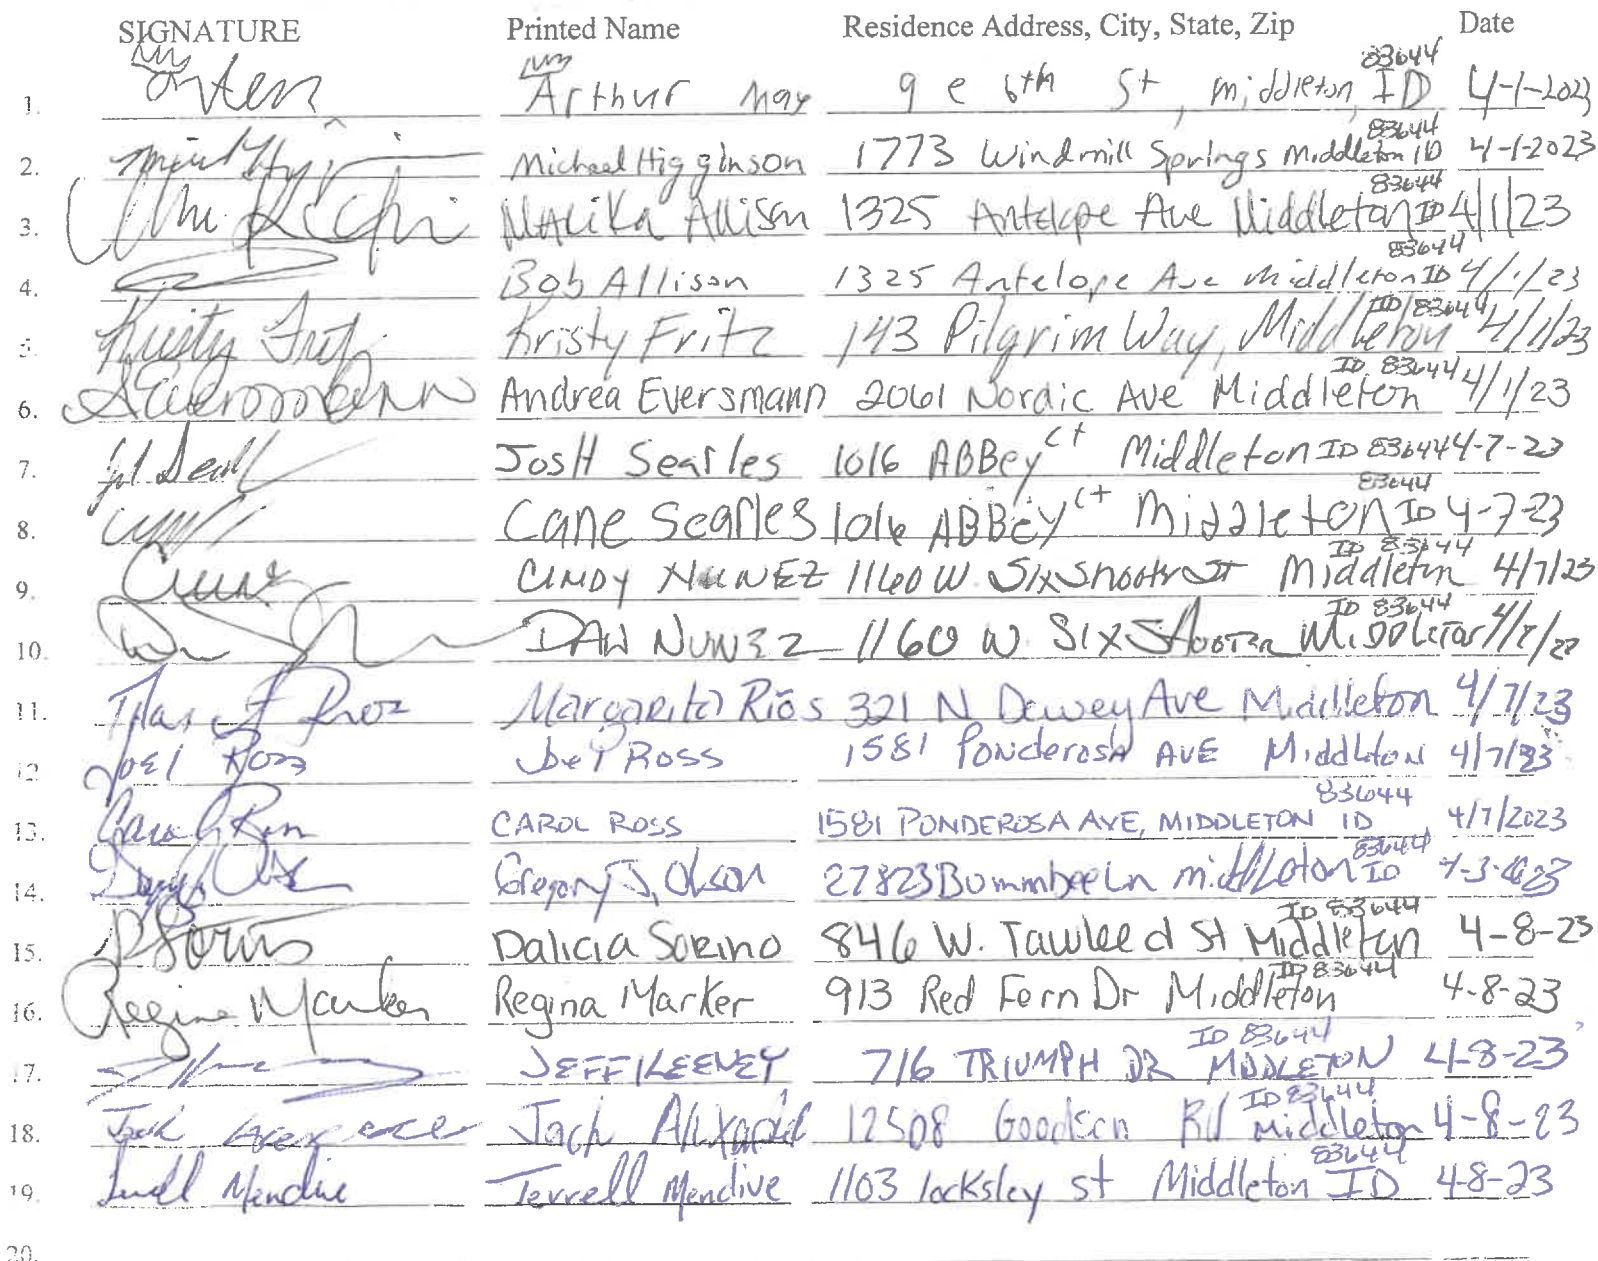 SIGNATURE Printed Name Residence Address, City, State, Zip Date
1. Arthur May 9 e 6th St, middleton, ID 83644 4-1-2023
2. Michael Higginson 1773 Windmill Springs Middleton ID 83644 4-1-2023
3. Malika Allison 1325 Antelope Ave Middleton ID 83644 4/1/23
4. Bob Allison 1325 Antelope Ave Middleton ID 83644 4/1/23
5. Kristy Fritz Kristy Fritz 143 Pilgrim Way, Middleton ID 83644 4/1/23
6. Andrea Eversmann 2061 Nordic Ave Middleton ID 83644 4/1/23
7. JosH Searles 1016 ABBey ct Middleton ID 83644 4-7-23
8. Cane Searles 1016 ABBey ct Middleton ID 83644 4-7-23
9. CINDY NUNEZ 1160 W Six Shooter St Middleton ID 83644 4/7/23
10. DAN NUNEZ 1160 W SIX SHOOTER MIDDLETON ID 83644
11. Margarita Rios 321 N Dewey Ave Middleton 4/7/23
12 Joel Ross Joel Ross 1581 Ponderosa AVE Middleton 4/7/23
13. Carol Ross CAROL ROSS 1581 PONDEROSA AVE, MIDDLETON ID 83644 4/7/2023
14. Gregory J. Olson 27823 Bummbee Ln middleton ID 83644
15. Dalicia Sorino 846 W. Tawleed St Middleton ID 83644 4-8-23
16. Regina Marker Regina Marker 913 Red Fern Dr Middleton ID 83644 4-8-23
17. JEFF KEENEY 716 TRIUMPH DR MIDDLETON ID 83644 4-8-23
18. Jack 12508 Goodson Rd Middleton ID 83644 4-8-23
19. Terrell Mendive Terrell Mendive 1103 locksley st Middleton ID 83644 4-8-23
20.